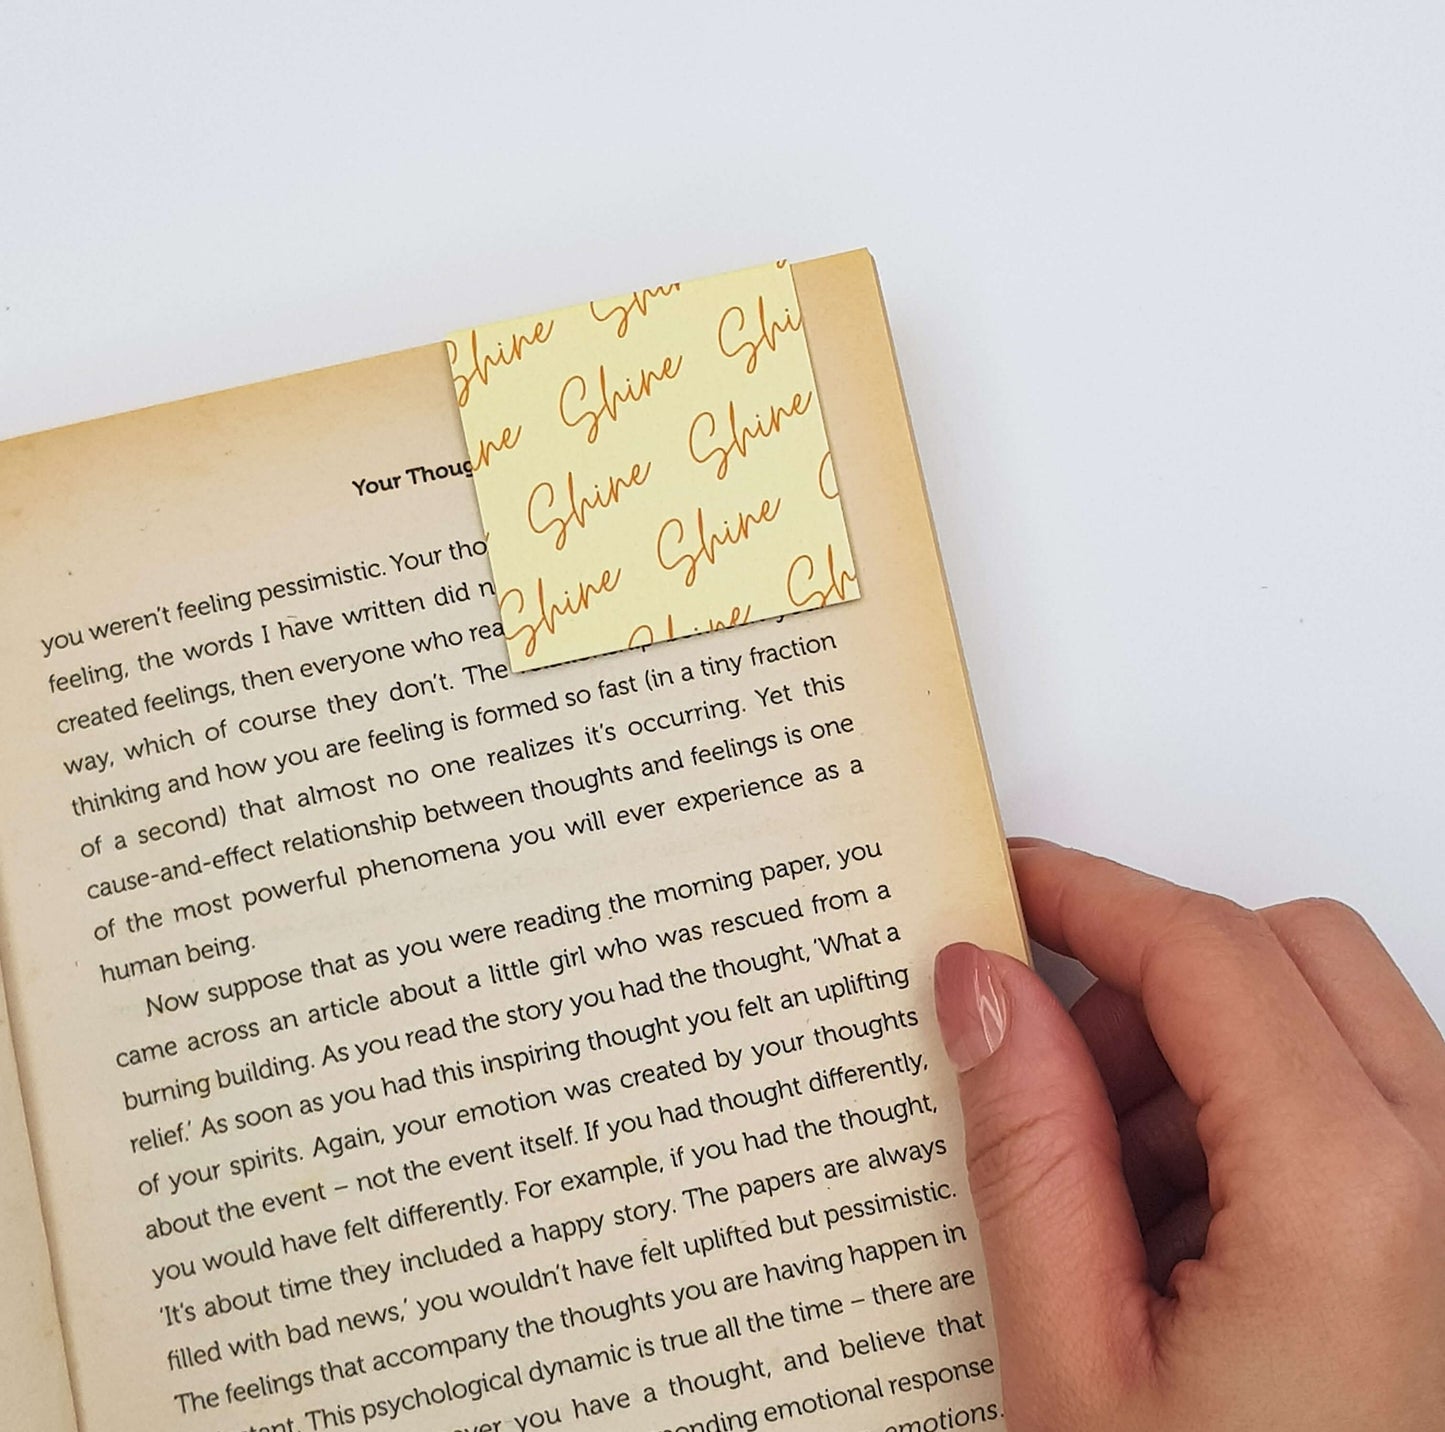 Shine
Shine Shi
Shine Shine
Shine Shine
Shine
Your
you weren't feeling pessimistic. Your
feeling, the words I have written did
created feelings, then everyone who
way, which of course they don't. The
thinking and how you are feeling is formed so fast (in a tiny fraction
of a second) that almost no one realizes it's occurring. Yet this
cause-and-effect relationship between thoughts and feelings is one
of the most powerful phenomena you will ever experience as a
human being.
Now suppose that as you were reading the morning paper, you
came across an article about a little girl who was rescued from a
burning building. As you read the story you had the thought, 'What a
relief.' As soon as you had this inspiring thought you felt an uplifting
of your spirits. Again, your emotion was created by your thoughts
about the event – not the event itself. If you had thought differently,
you would have felt differently. For example, if you had the thought,
'It's about time they included a happy story. The papers are always
filled with bad news,' you wouldn't have felt uplifted but pessimistic.
The feelings that accompany the thoughts you are having happen in
This psychological dynamic is true all the time – there are
you have a thought, and believe that
emotional response
emotions.